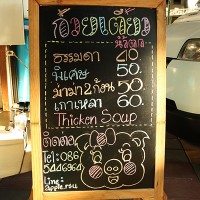 ก๋วยเตี๋ยว
น้ำตก
ธรรมดา 40
พิเศษ 50.
มาม่า 2 ก้อน 50.
เกาเหลา 60.
Thicken Soup
ติดต่อ
Tel: 086
5446964
Line:
apple.rsu